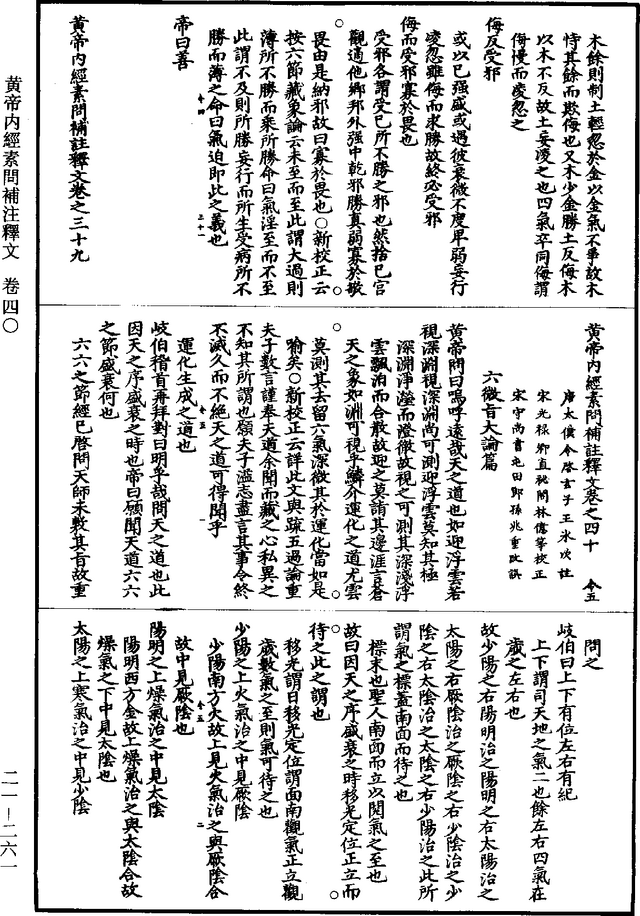 黃帝內經素問補注釋文　卷四〇
二一—二六一
木餘則制土輕忽於金以金氣不爭故木
恃其餘而欺侮也又木少金勝土反侮木
以木不及故土妄凌之也四氣卒同侮謂
侮慢而凌忽之
侮反受邪
或以己强盛或遇彼衰微不度卑弱妄行
凌忽雖侮而求勝故終必受邪
侮而受邪寡於畏也
受邪各謂受己所不勝之邪也然捨己宮
觀適他鄉邦外强中乾邪勝真弱寡於敬
畏由是納邪故曰寡於畏也○新校正云
按六節藏象論云未至而至此謂太過則
薄所不勝而乘所勝命曰氣淫至而不至
此謂不及則所勝妄行而所生受病所不
勝而薄之命曰氣迫即此之義也
帝曰善
黃帝內經素問補註釋文卷之三十九
黃帝內經素問補註釋文卷之四十　令五
唐太僕令啓玄子王冰次註
宋光禄卿直秘閣林億等校正
宋守尚書屯田郎孫兆重改誤
六微旨大論篇
黃帝問曰嗚呼遠哉天之道也如迎浮雲若
視深淵視深淵尚可測迎浮雲莫知其極
深淵淨瀅而澄徹故視之可測其深淺浮
雲飄泊而合散故迎之莫詣其邊涯言蒼
天之象如淵可視乎鱗介運化之道尤雲
莫測其去留六氣深微其於運化當如是
喻矣○新校正云詳此文與疏五過論重
夫子數言謹奉天道余聞而藏之心私異之
不知其所謂也願夫子溢志盡言其事令終
不滅久而不絕天之道可得聞乎
運化生成之道也
岐伯稽首再拜對曰明乎哉問天之道也此
因天之序盛衰之時也帝曰願聞天道六六
之節盛衰何也
六六之節經已啓問天師未敷其旨故重
問之
岐伯曰上下有位左右有紀
上下謂司天地之氣二也餘左右四氣在
歲之左右也
故少陽之右陽明治之陽明之右太陽治之
太陽之右厥陰治之厥陰之右少陰治之少
陰之右太陰治之太陰之右少陽治之此所
謂氣之標蓋南面而待之也
標末也聖人南面而立以閱氣之至也
故曰因天之序盛衰之時移光定位正立而
待之此之謂也
移光謂日移光定位謂面南觀氣正立觀
歲數氣之至則氣可待之也
少陽之上火氣治之中見厥陰
少陽南方火故上見火氣治之與厥陰合
故中見厥陰也
陽明之上燥氣治之中見太陰
陽明西方金故上燥氣治之與太陰合故
燥氣之下中見太陰也
太陽之上寒氣治之中見少陰